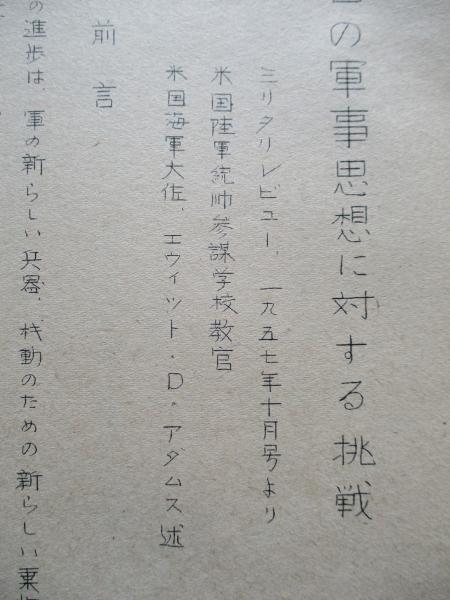 の軍事思想に対する挑戦
ミリタリレビュー、一九五七年十月号より
米国陸軍統帥参謀学校教官
米国海軍大佐、エウィット・D・アダムス述
前言
の進歩は、軍の新らしい兵器、機動のための新らしい乗